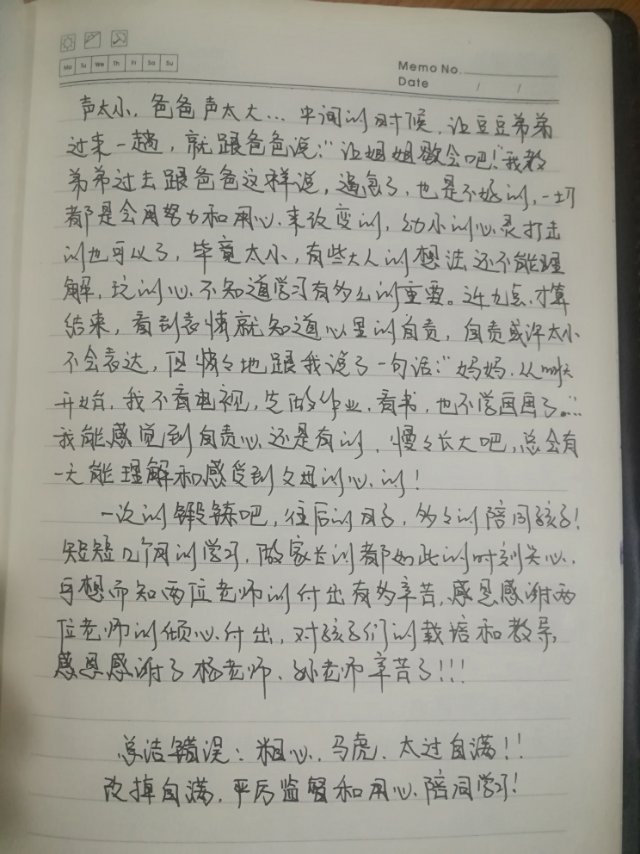 Mo Tu We Th Fr Sa Su
Memo No.
Date / /
声太小，爸爸声太大…中间的时候，让豆豆弟弟
过来一趟，就跟爸爸说:"让姐姐歇会吧!"我教
弟弟过去跟爸爸这样说，逼急了，也是不好的，一切
都是会用努力和用心.来改变的，幼小的心灵打击
的也可以了，毕竟太小，有些大人的想法还不能理
解，玩的心.不知道学习有多么的重要。近九点.才算
结束，看到表情就知道心里的自责，自责或许太小
不会表达，但悄々地跟我说了一句话:"妈妈.从明天
开始，我不看电视，先做作业.看书，也不学画画了…
我能感觉到自责心.还是有的.慢々长大吧，总会有
一天能理解和感受到父母的心.的!
一次的锻炼吧，往后的日子，多々的陪同孩子!
短短几个月的学习，做家长的都如此的时刻关心.
可想而知两位老师的付出有多辛苦，感恩感谢两
位老师的倾心.付出，对孩子们的栽培和教导，
感恩感谢了杨老师、孙老师辛苦了!!!
总洁错误：粗心、马虎、太过自满!!
改掉自满，平厉监督和用心.陪同学习!